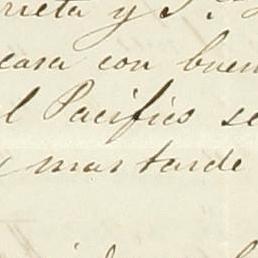 rrieta y S.
casa con buen
l Pacifico se
y mas tarde